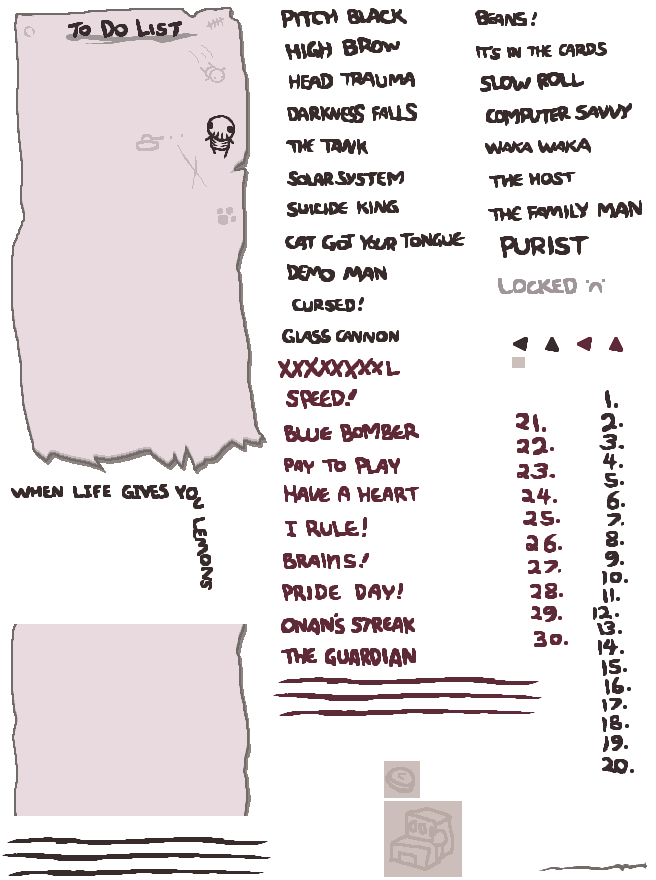 TO DO LIST
WHEN LIFE GIVES YOU LEMONS
PITCH BLACK
HIGH BROW
HEAD TRAUMA
DARKNESS FALLS
THE TANK
SOLAR SYSTEM
SUICIDE KING
CAT GOT YOUR TONGUE
DEMO MAN
CURSED!
GLASS CANNON
XXXXXXXXL
SPEED!
BLUE BOMBER
PAY TO PLAY
HAVE A HEART
I RULE!
BRAINS!
PRIDE DAY!
ONAN'S STREAK
THE GUARDIAN
BEANS!
IT'S IN THE CARDS
SLOW ROLL
COMPUTER SAVVY
WAKA WAKA
THE HOST
THE FAMILY MAN
PURIST
LOCKED :'n'
21.
22.
23.
24.
25.
26.
27.
28.
29.
30.
1.
2.
3.
4.
5.
6.
7.
8.
9.
10.
11.
12.
13.
14.
15.
16.
17.
18.
19.
20.